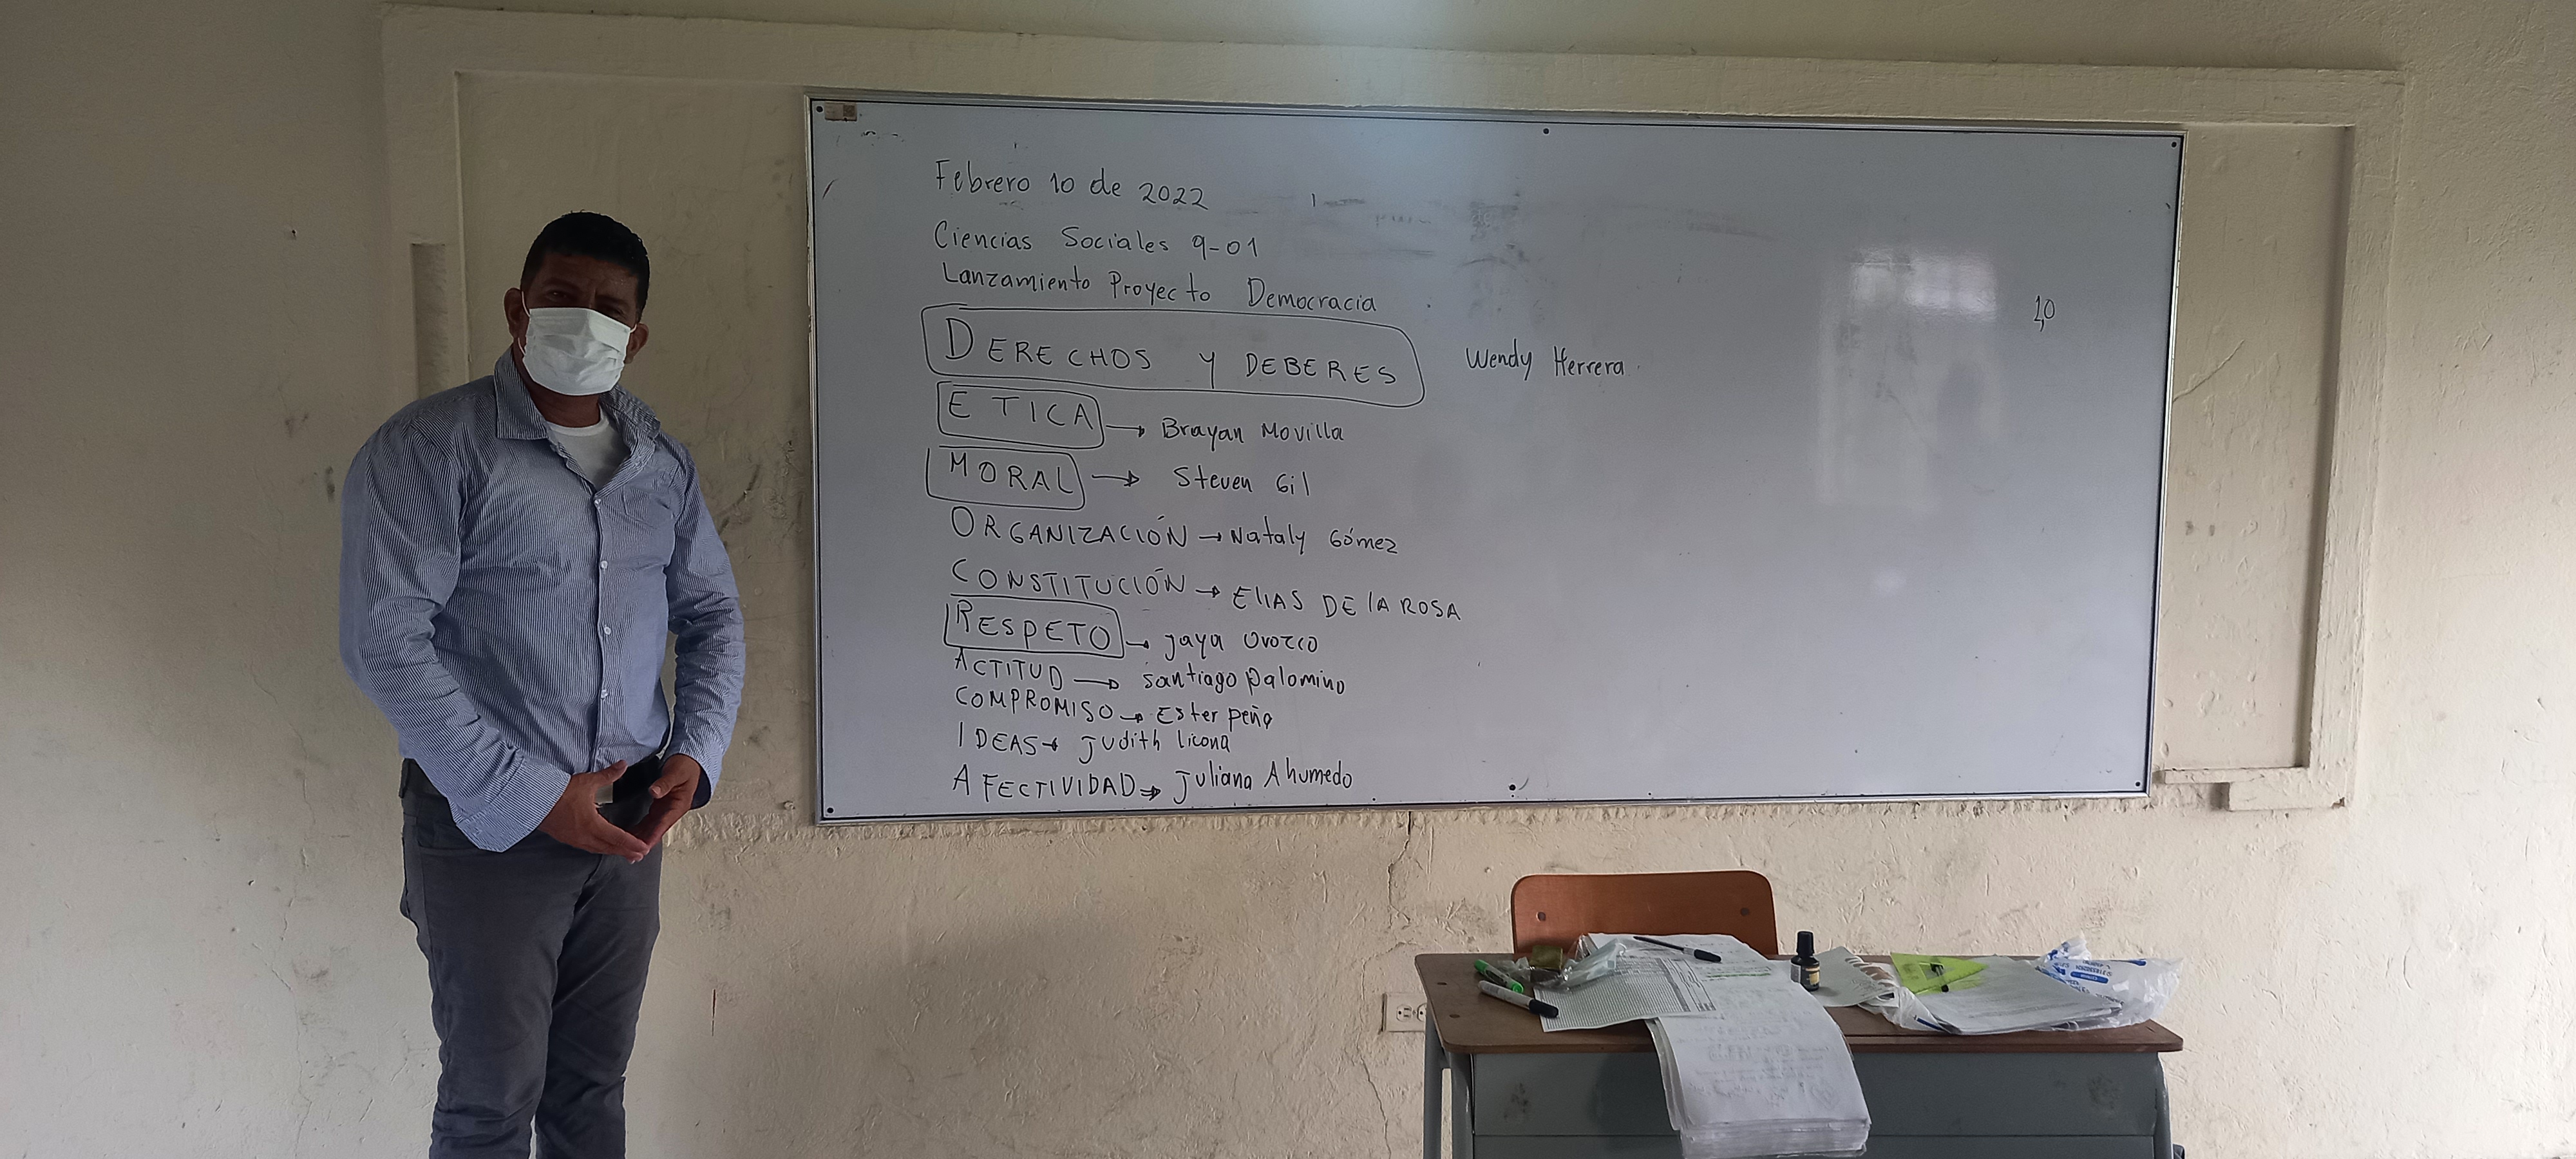 Febrero 10 de 2022
Ciencias Sociales 9-01
Lanzamiento Proyecto Democracia
1,0
DERECHOS Y DEBERES Wendy Herrera
ETICA → Brayan Movilla
MORAL → Steven Gil
ORGANIZACIÓN → Nataly Gómez
CONSTITUCIÓN → ELIAS DE LA ROSA
RESPETO → jaya Orozco
ACTITUD → santiago palomino
COMPROMISO → Ester peña
IDEAS → judith licona
AFECTIVIDAD → Juliana Ahumedo